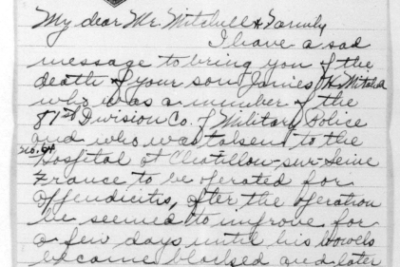 My dear Mr. Mitchell & Family
I have a sad
message to bring you of the
death of your son James H. Mitchell
who was a member of the
81st Division Co. of Military Police
and who was taken to the
hospital at Chatillon-sur-Seine
France to be operated for
appendicitis, after the operation
he seemed to improve for
a few days until his bowels
became blocked and later